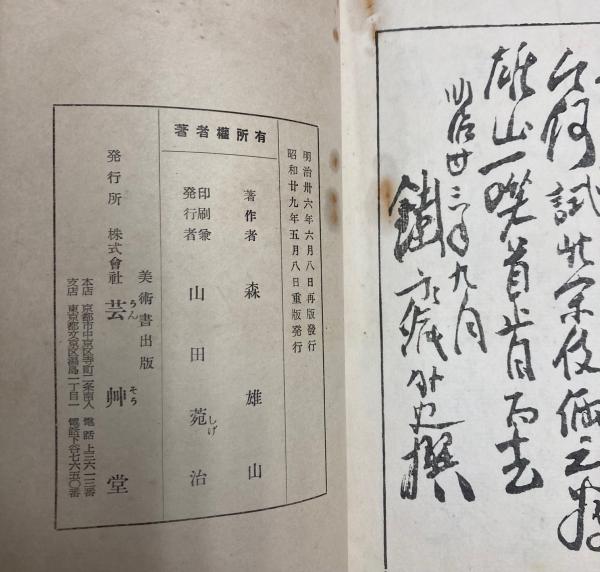 雄山一噱首肯而去
明治廿三年九月
鐵 外史撰
著者權所有
明治卅六年六月八日再版發行
昭和廿九年五月八日重版発行
著作者 森雄山
印刷兼発行者 山田菀治
しげ
美術書出版
発行所 株式會社 芸艸堂
うんそう
本店 京都市中京区寺町二条南入 電話 上三六一三番
支店 東京都文京区湯島一丁目一 電話下谷七六五〇番